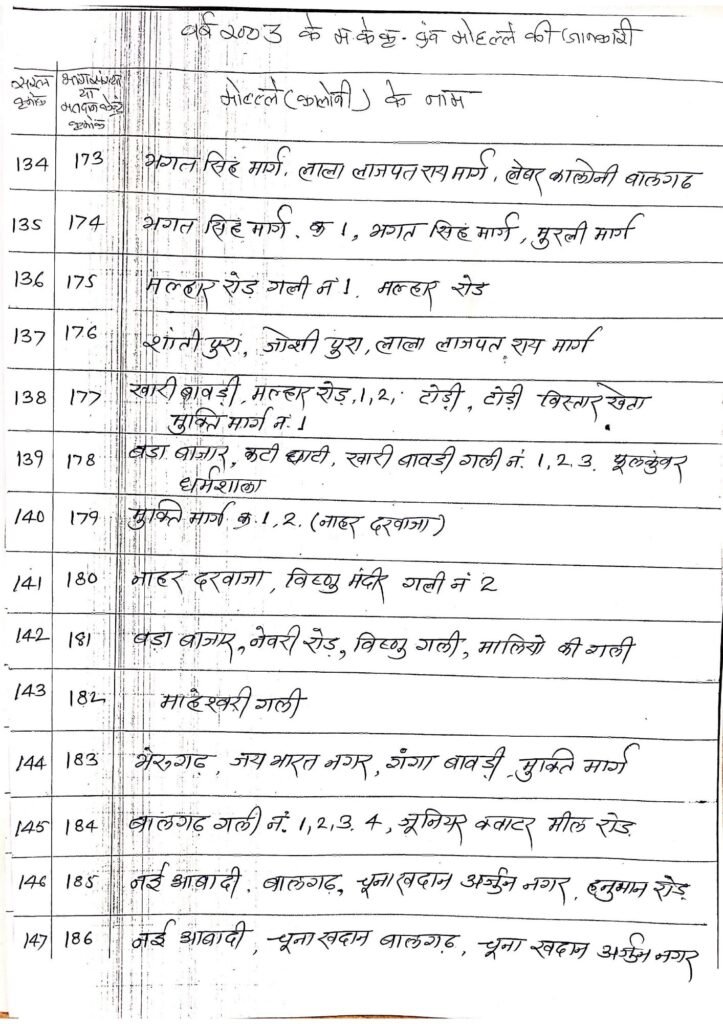 वर्ष 2003 के म के क्र. एंव मोहल्ले की जानकारी
सरल क्रमांक
भाग संख्या या मतदान केन्द्र क्रमांक
मोहल्ले (कालोनी) के नाम
134 173 भगत सिंह मार्ग, लाला लाजपत राय मार्ग, लेबर कालोनी बालगढ
135 174 भगत सिंह मार्ग. क्र 1, भगत सिंह मार्ग, मुरली मार्ग
136 175 मल्हार रोड़ गली नं 1. मल्हार रोड
137 176 शांती पुरा, जोशी पुरा, लाला लाजपत राय मार्ग
138 177 खारी बावड़ी, मल्हार रोड़, 1, 2, टोड़ी, टोड़ी विस्तार खेता
मुक्ति मार्ग नं. 1
139 178 बडा बाजार, कटी घाटी, खारी बावडी गली नं. 1, 2, 3. फूलकुंवर
धर्मशाला
140 179 मुक्ति मार्ग क्र. 1, 2. (नाहर दरवाजा)
141 180 नाहर दरवाजा, विष्णु मंदीर गली नं 2
142 181 बड़ा बाजार, नेवरी रोड़, विष्णु गली, मालियो की गली
143 182 माहेश्वरी गली
144 183 भेरूगढ़, जय भारत नगर, गंगा बावड़ी, मुक्ति मार्ग
145 184 बालगढ़ गली नं. 1, 2, 3. 4, जूनियर क्वाटर मील रोड़
146 185 नई आबादी, बालगढ़, चूना खदान अर्जुन नगर, हनुमान रोड़
147 186 नई आबादी, चूना खदान बालगढ़, चूना खदान अर्जुन नगर